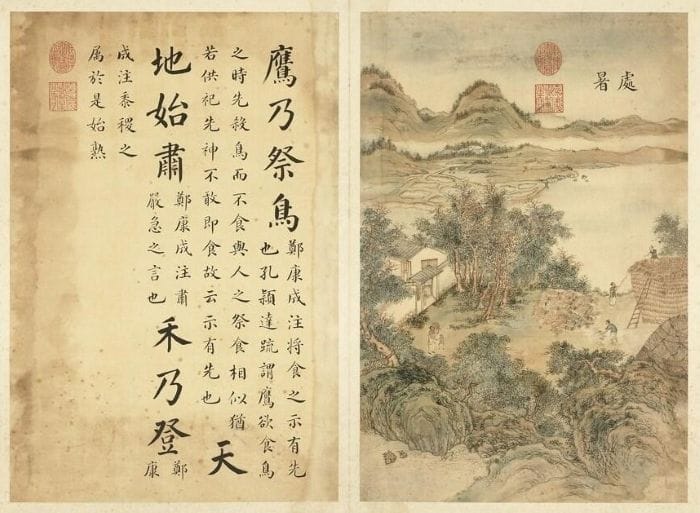 處暑
鷹乃祭鳥
鄭康成注将食之示有先
也孔穎達疏謂鷹欲食鳥
之時先殺鳥而不食與人之祭食相似猶
若供祀先神不敢即食故云示有先也
天
地始肅
鄭康成注肅
嚴急之言也
禾乃登
鄭
康
成注黍稷之
属於是始熟